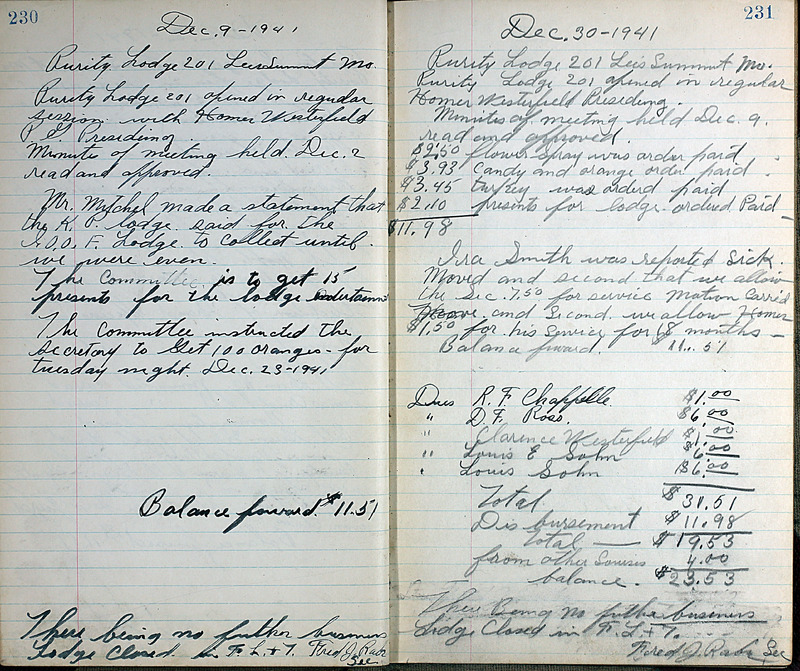 230
Dec. 9 - 1941
Purity Lodge 201 Leis Summit Mo.
Purity Lodge 201 opened in regular
session. with Homer Westerfield
P.G. Presiding.
Minutes of meeting held. Dec. 2
read and approved.
Mr. Mitchel made a statement that
the K. P. lodge said for the
I.O.O.F. Lodge to collect until
we were even.
The Committee is to get 15
presents for the lodge
The Committee instructed the
Secretary to Get 100 oranges - for
tuesday night. Dec. 23 - 1941
Balance forward. $11.51
There being no futher business
Lodge Closed in F. L. + T. Fred J. Rabe
Sec
231
Dec. 30 - 1941
Purity Lodge 201 Leis Summit Mo.
Purity Lodge 201 opened in regular
Homer Westerfield Presiding.
Minutes of meeting held Dec. 9.
read and approved.
$2.50 flower spray was order paid.
$3.93 Candy and orange order paid.
$3.45 turkey was orderd paid
$2.10 presents for lodge. ordered Paid -
$11.98
Ira Smith was reported Sick.
Moved and second that we allow
the Sec. 7.50 for service Motion Carrid
and Second. we allow Homer
$1.50 for his service for 18 months -
Balance fward. 11.51
Dues R. F. Chappelle $1.00
" D. F. Ross. $6.00
" Clarence Westerfield $1.00
" Louis E Sohn $6.00
" Louis Sohn $6.00
Total $31.51
Disbursement $11.98
total — $19.53
from other Sourses 4.00
balance. $23.53
There Being no futher business
Lodge Closed in F. L. + T.
Fred J. Rabe Sec